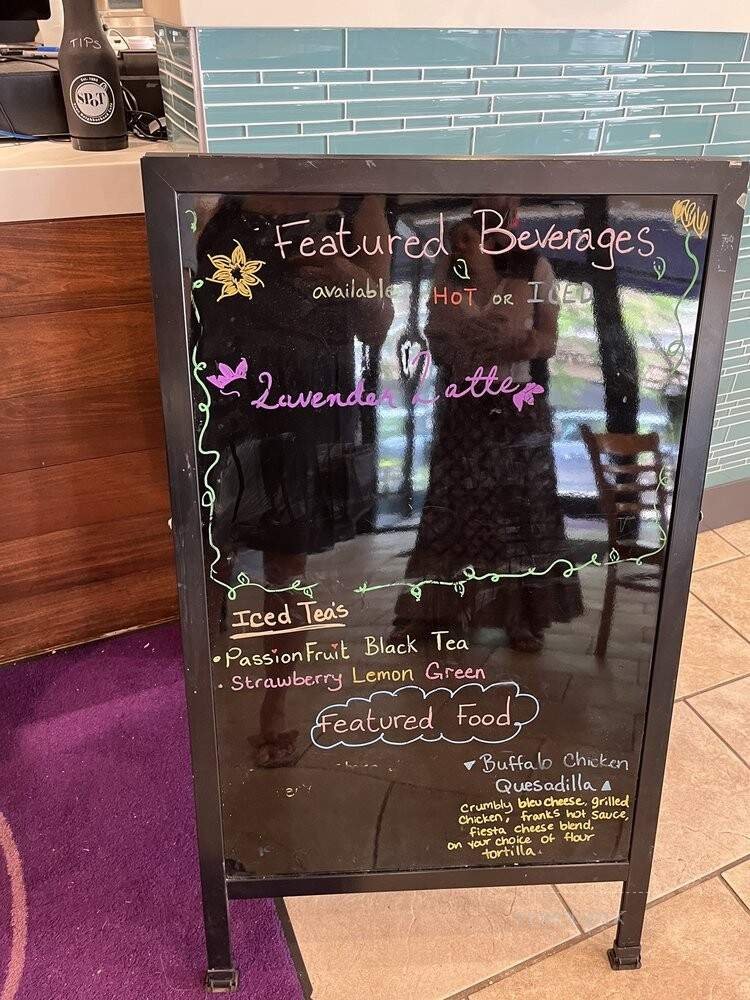 TIPS
SPoT
Featured Beverages
available HOT or ICED
Lavender Latte
Iced Tea's
• PassionFruit Black Tea
• Strawberry Lemon Green
Featured Food
Buffalo Chicken
Quesadilla
Crumbly bleu cheese, grilled
Chicken, franks hot sauce,
fiesta cheese blend,
on your choice of flour
tortilla.